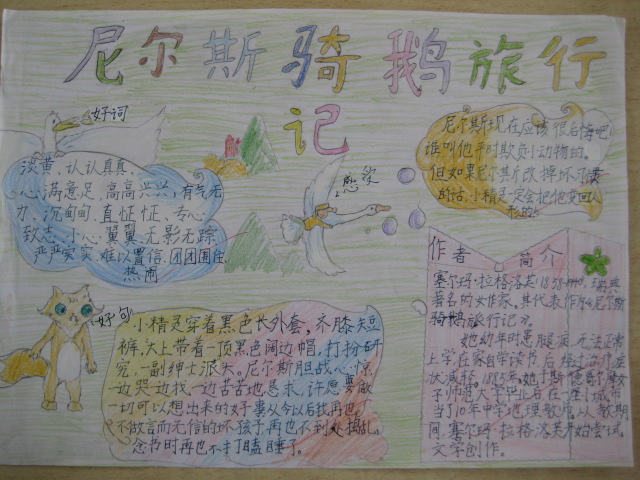 尼尔斯骑鹅旅行
记
好词
淡黄、认认真真、
心满意足、高高兴兴、有气无
力、沉甸甸、直怔怔、专心
致志、小心翼翼、无影无踪
严严实实、难以置信、团团围住、
热闹
感受
尼尔斯现在应该很后悔吧
谁叫他平时欺负小动物的。
但如果尼尔斯改掉坏
的话,小精灵一定会把他变回人
形的。
作者简介
塞尔玛·拉格洛芙(1858-1940),瑞典
著名的女作家,其代表作《尼尔斯
骑鹅旅行记》。
她幼年时患腿病,无法正常
上学,在家自学读书后经过治疗症
状减轻,
子师范大学毕业后在一座小城市
当了10年中学地理教师,从教期
间,塞尔玛·拉格洛芙开始尝试
文学创作。
好句
小精灵穿着黑色长外套、齐膝短
裤,头上带着一顶黑色阔边帽,打扮
一副绅士派头。尼尔斯胆战心惊
一边哭一边找,一边苦苦地恳求,许愿要做
一切可以想出来的好事从今以后我再也
不做言而无信的坏孩子再也不到处捣乱,
念书时再也不打瞌睡了。